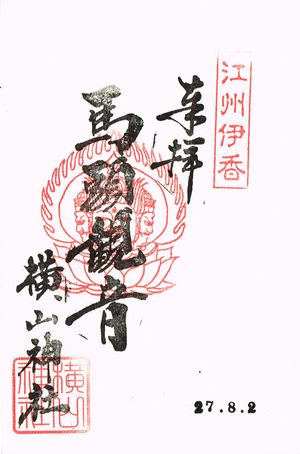 江州伊香
奉拝
馬頭觀音
横山神社
横山神社
27.8.2